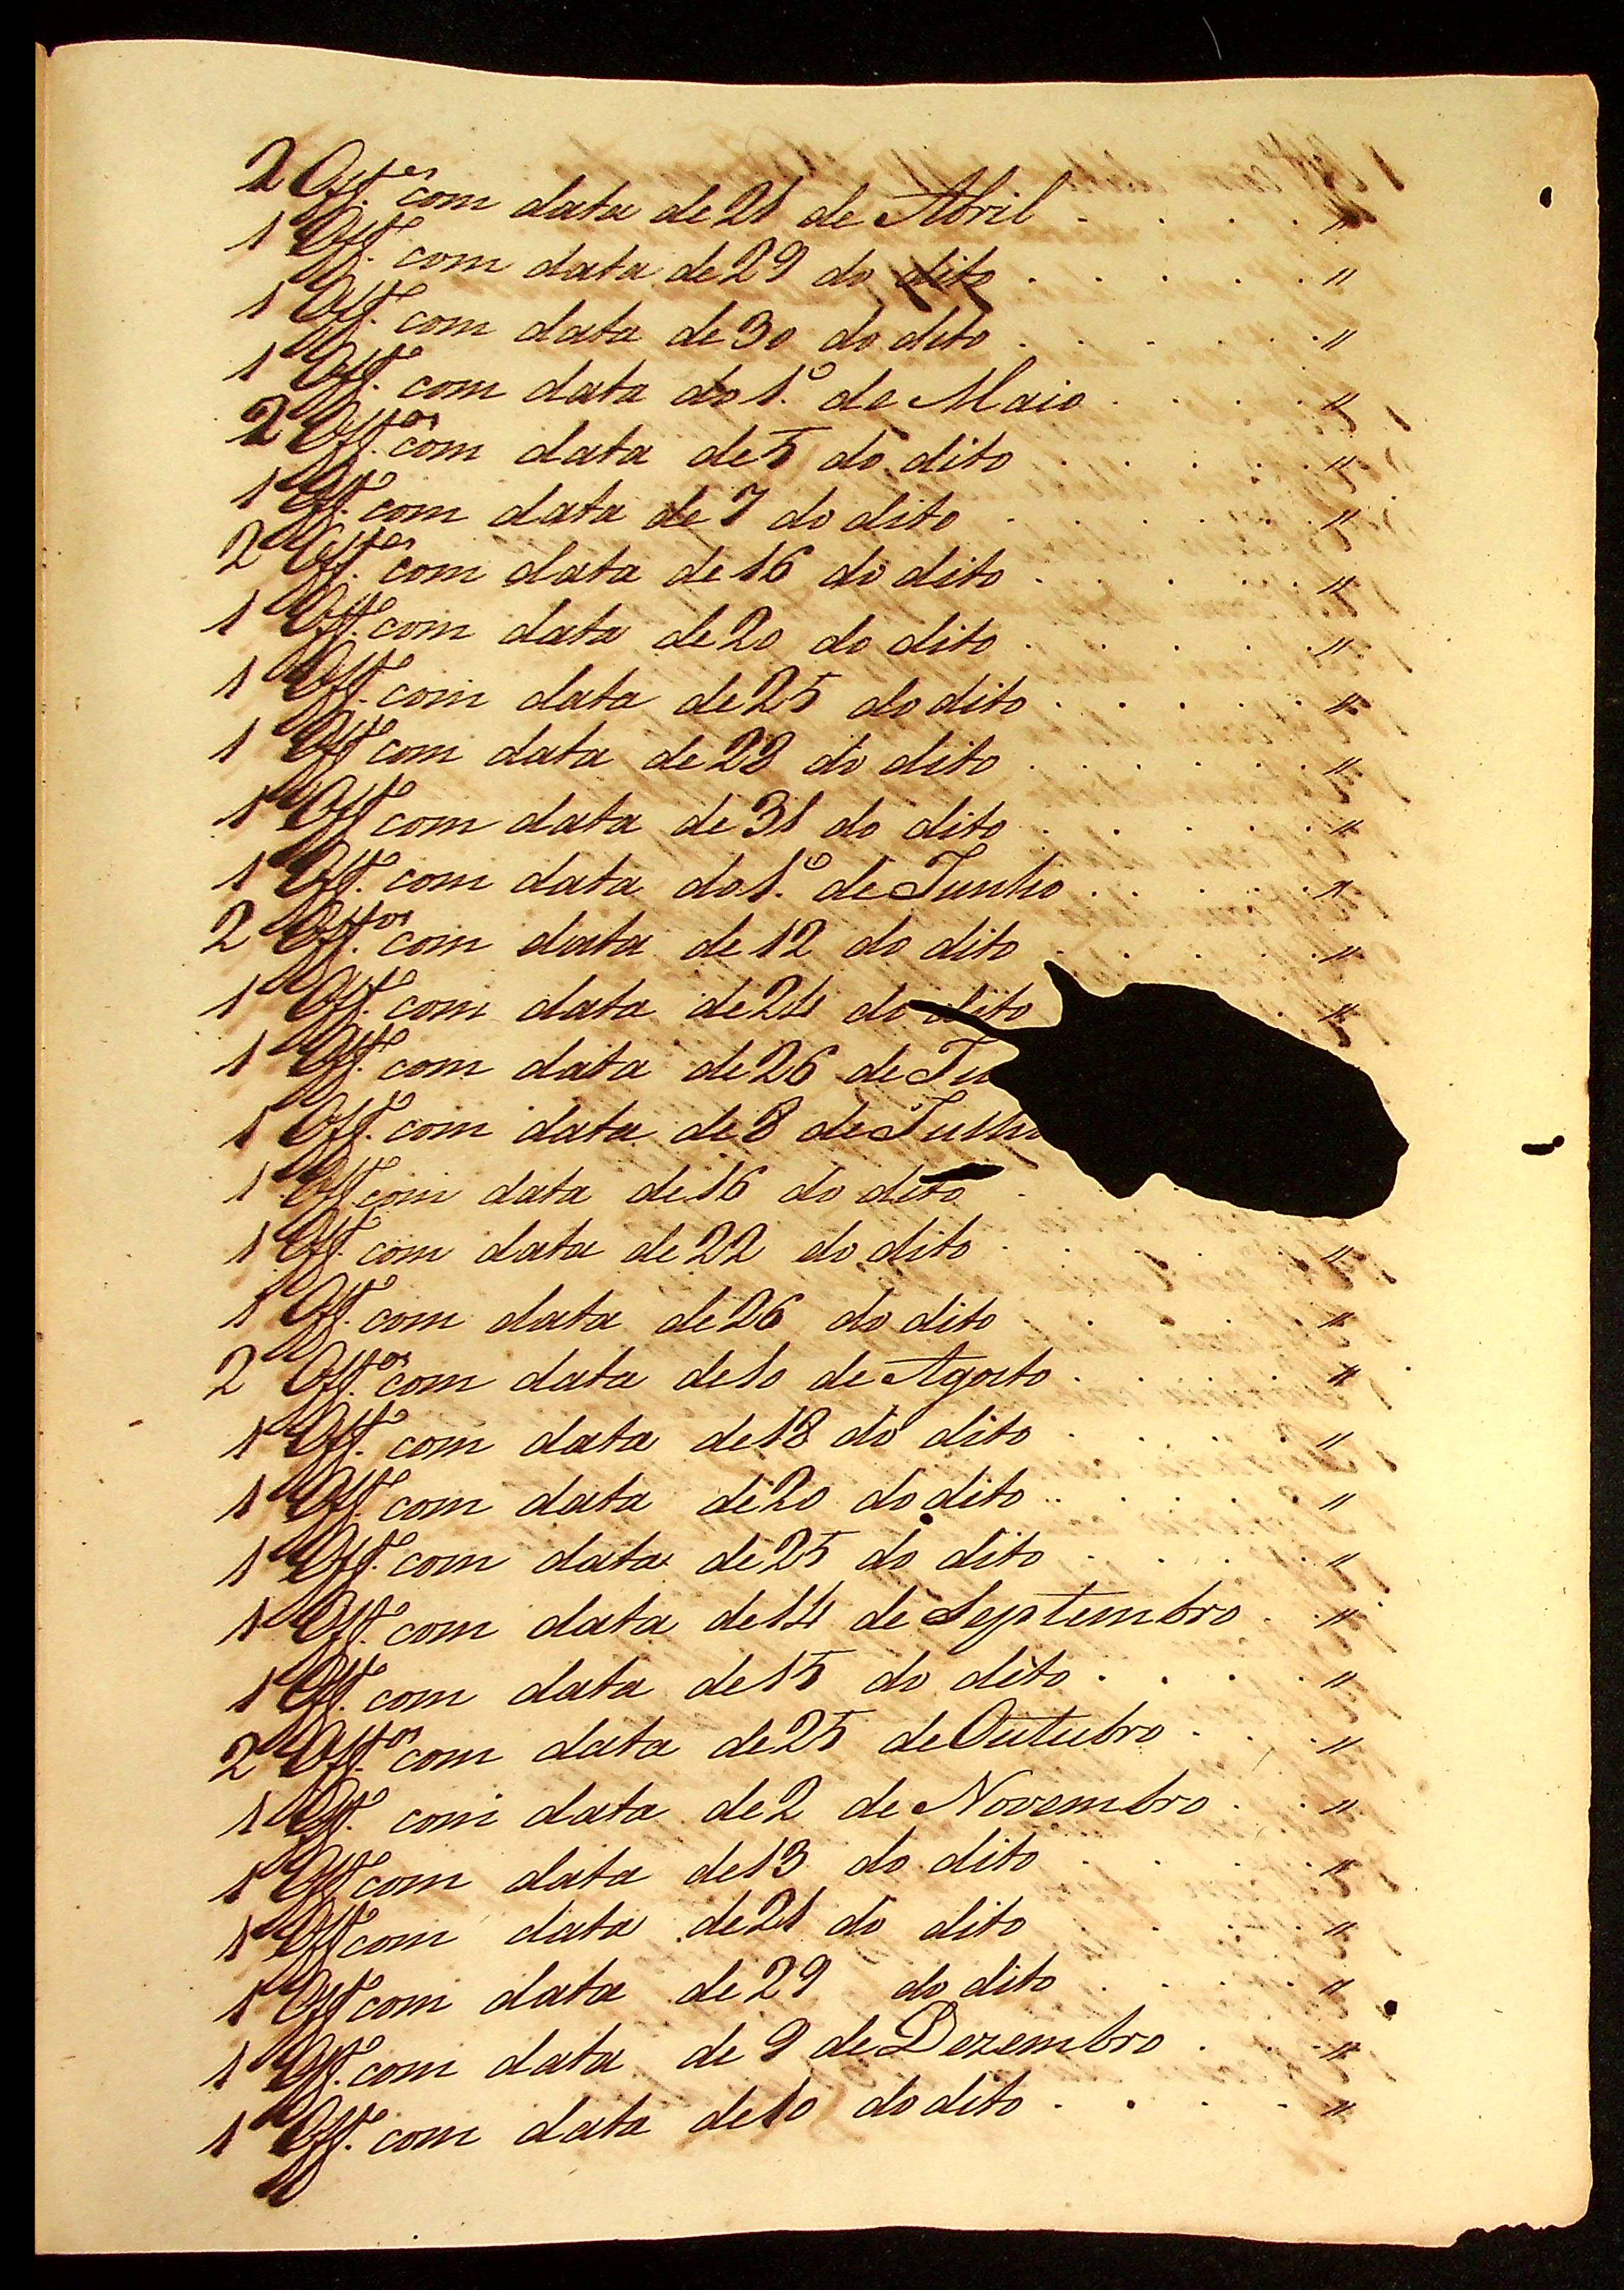 2 Off.os com data de 21 de Abril . . . . "
1 Off.o com data de 29 do dito . . . . . "
1 Off.o com data de 30 do dito . . . . . . "
1 Off.o com data do 1.o de Maio . . . . "
2 Off.os com data de 5 do dito . . . . . "
1 Off.o com data de 7 do dito . . . . . . "
2 Off.os com data de 16 do dito . . . . . "
1 Off.o com data de 20 do dito . . . . . . "
1 Off.o com data de 25 do dito . . . . . "
1 Off.o com data de 28 do dito . . . . . . "
1 Off.o com data de 31 do dito . . . . . "
1 Off.o com data do 1.o de Junho . . . . . "
2 Off.os com data de 12 do dito . . . . . "
1 Off.o com data de 24 do dito . "
1 Off.o com data de 26 de Ju
1 Off.o com data de 8 de Julho
1 Off.o com data de 16 do dito .
1 Off.o com data de 22 do dito . . . . . "
1 Off.o com data de 26 do dito . . . . "
2 Off.os com data de 10 de Agosto . . . . "
1 Off.o com data de 18 do dito . . . . "
1 Off.o com data de 20 do dito . . . . "
1 Off.o com data de 25 do dito . . . . . "
1 Off.o com data de 14 de Septembro . . "
1 Off.o com data de 15 do dito . . . . "
2 Off.os com data de 25 de Outubro . . . "
1 Off.o com data de 2 de Novembro . . "
1 Off.o com data de 13 do dito . . . . "
1 Off.o com data de 21 do dito . . . . "
1 Off.o com data de 29 do dito . . . . "
1 Off.o com data de 9 de Dezembro . . . "
1 Off.o com data de 10 do dito . . . . . "